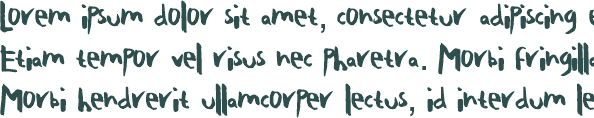 Lorem ipsum dolor sit amet, consectetur adipiscing
Etiam tempor vel risus nec pharetra. Morbi fringilla
Morbi hendrerit ullamcorper lectus, id interdum le